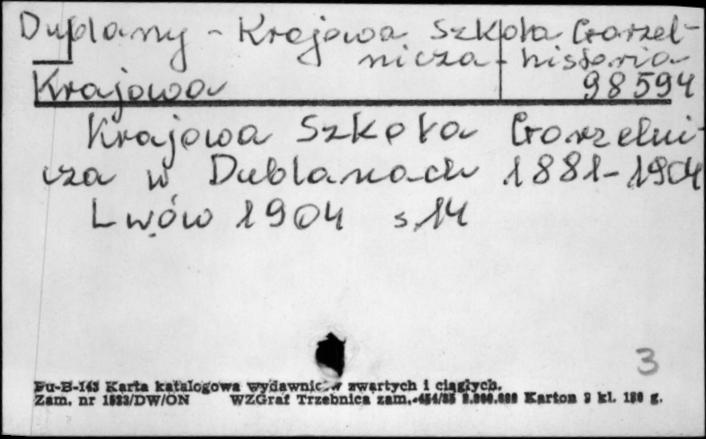 Dublany - Krajowa Szkoła Gorzel-
nicza - historia
Krajowa 98594
Krajowa Szkoła Gorzelni-
cza w Dublanach 1881-1904
Lwów 1904 s. 14
3
Pu-B-143 Karta katalogowa wydawnictw zwartych i ciągłych.
Zam. nr /DW/ON WZGraf Trzebnica zam. Karton 3 kl. g.